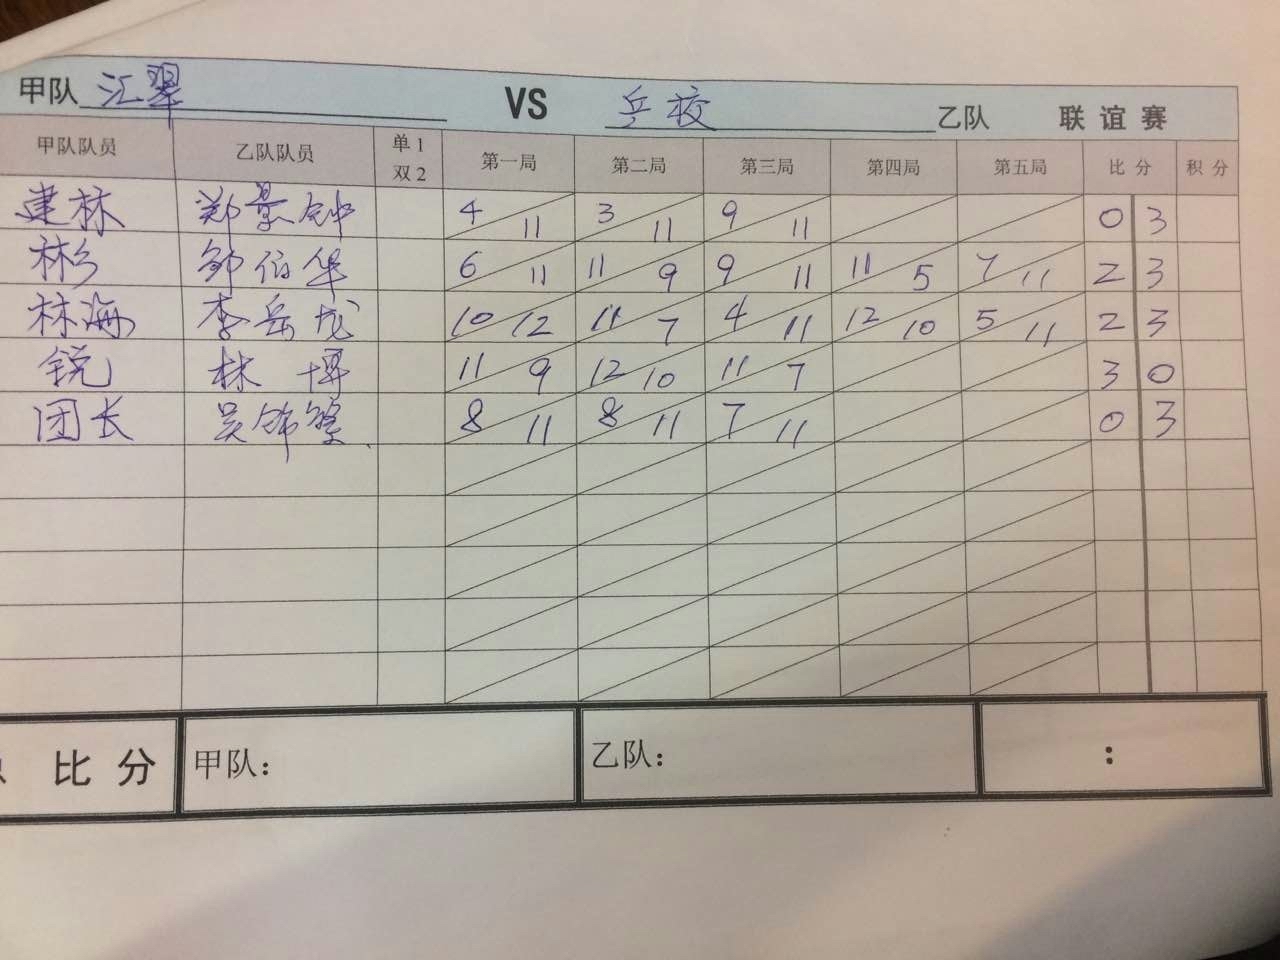 甲队 汇翠 VS 乒校 乙队 联谊赛
甲队队员 乙队队员 单1 双2 第一局 第二局 第三局 第四局 第五局 比分 积分
建林 郑景钟 4 11 3 11 9 11 0 3
彬 邹伯华 6 11 11 9 9 11 11 5 7 11 2 3
林海 李岳龙 10 12 11 7 4 11 12 10 5 11 2 3
锐 林博 11 9 12 10 11 7 3 0
团长 吴 8 11 8 11 7 11 0 3
比分 甲队: 乙队: :